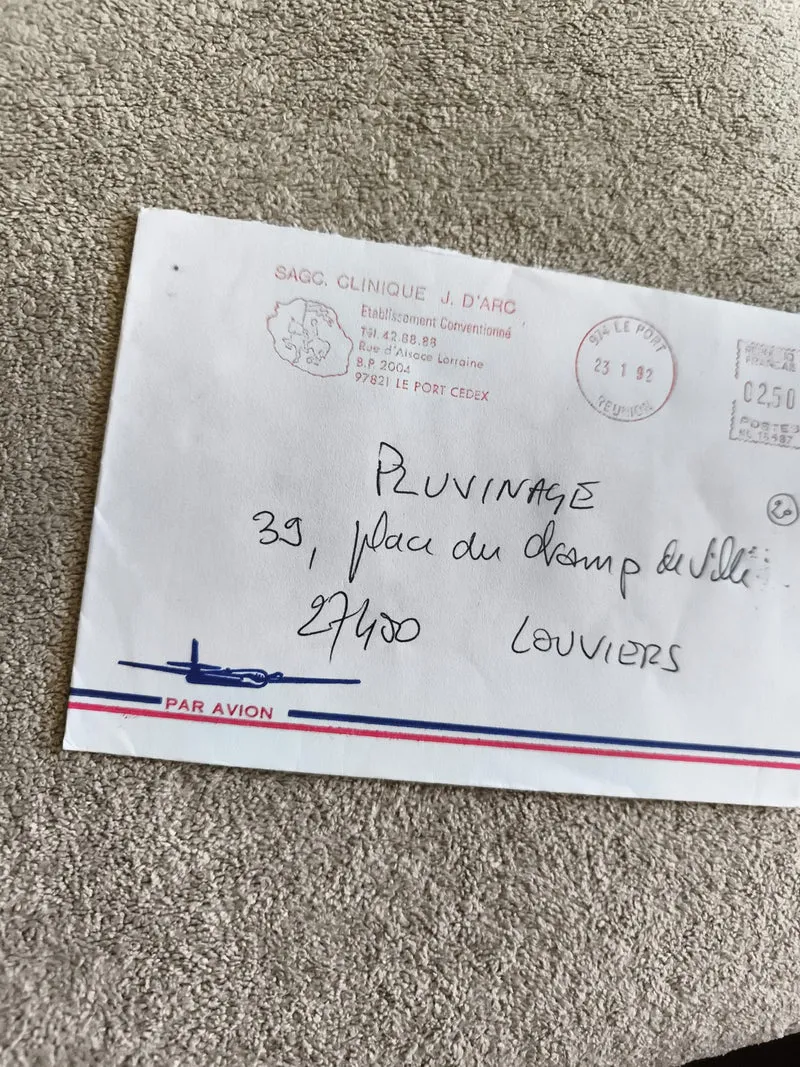 SAGC. CLINIQUE J. D'ARC
Etablissement Conventionné
Tél. 42.88.88
Rue d'Alsace Lorraine
B.P. 2004
97821 LE PORT CEDEX
974 LE PORT
23 1 92
REUNION
02,50
POSTES
PLUVINAGE
20
39, place du champ de ville
27400 LOUVIERS
PAR AVION